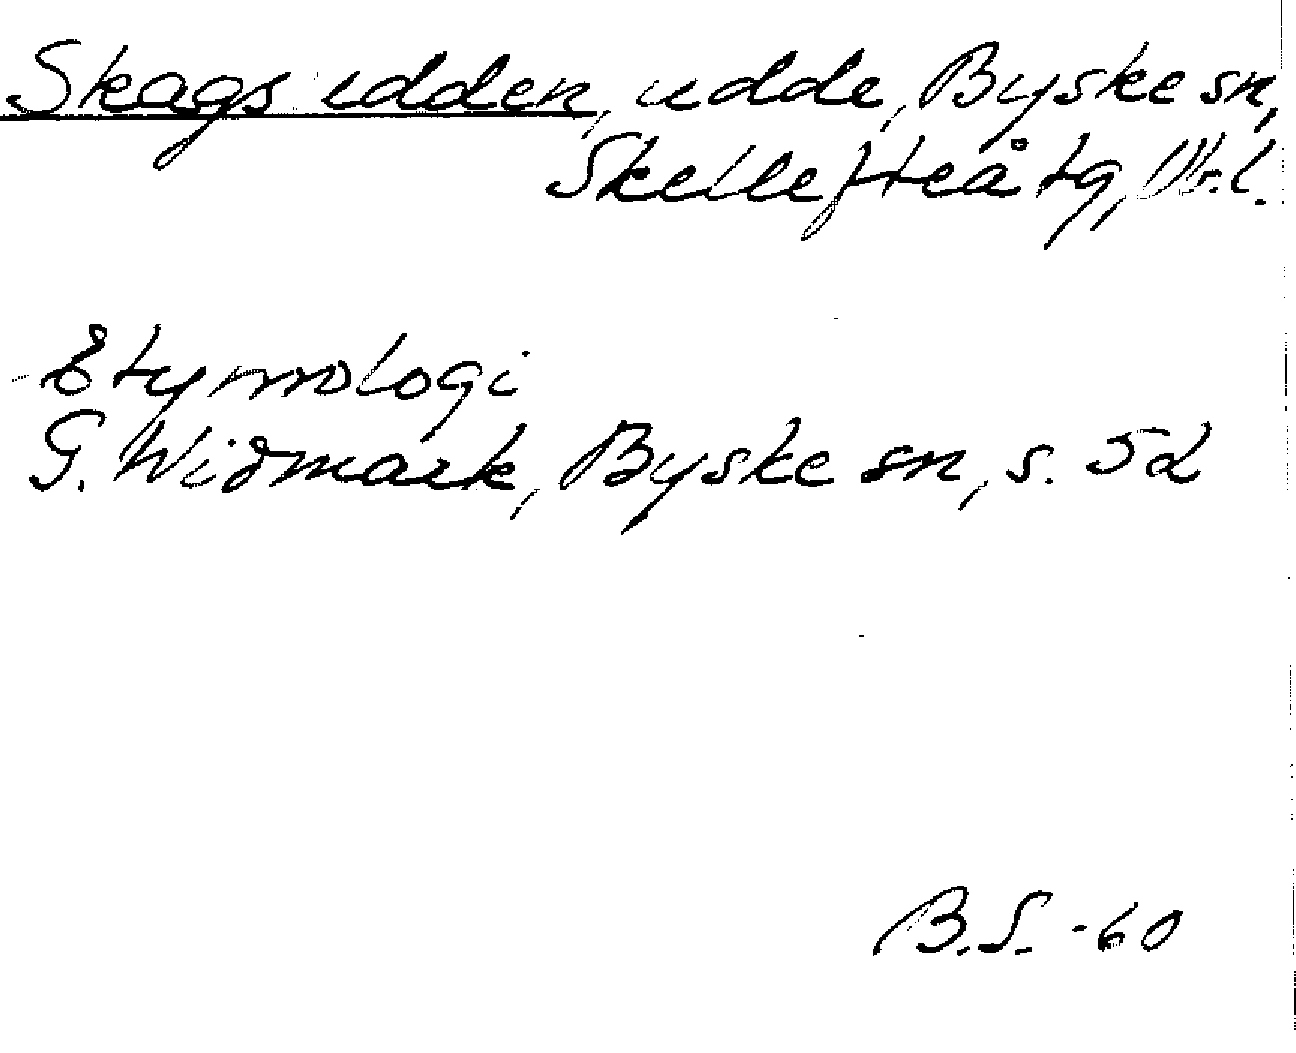 Skags udden, udde, Byske sn,
Skellefteå tg, Vb. l.
Etymologi
G. Widmark, Byske sn, s. 52
B.S. -60